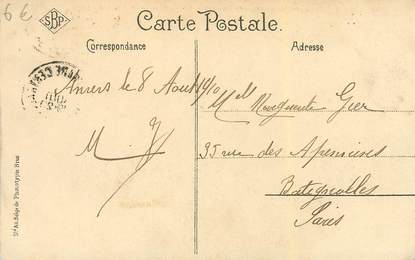 6 €
SBP
Carte Postale.
Correspondance
Adresse
Anvers le 8 Aout 1910
Mell Marguerite Gier
35 rue des Apennines
Batignolles
Paris
Sté An. Belge de Phototypie Brux